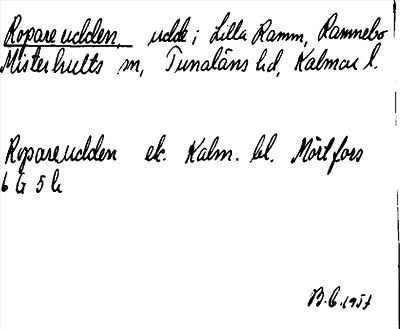 Ropareudden, udde i Lilla Ramm, Ramnebo
Misterhults sn, Tunaläns hd, Kalmar l.
Ropareudden ek. Kalm. bl. Mörtfors
6 G 5 h
B.C. 1957